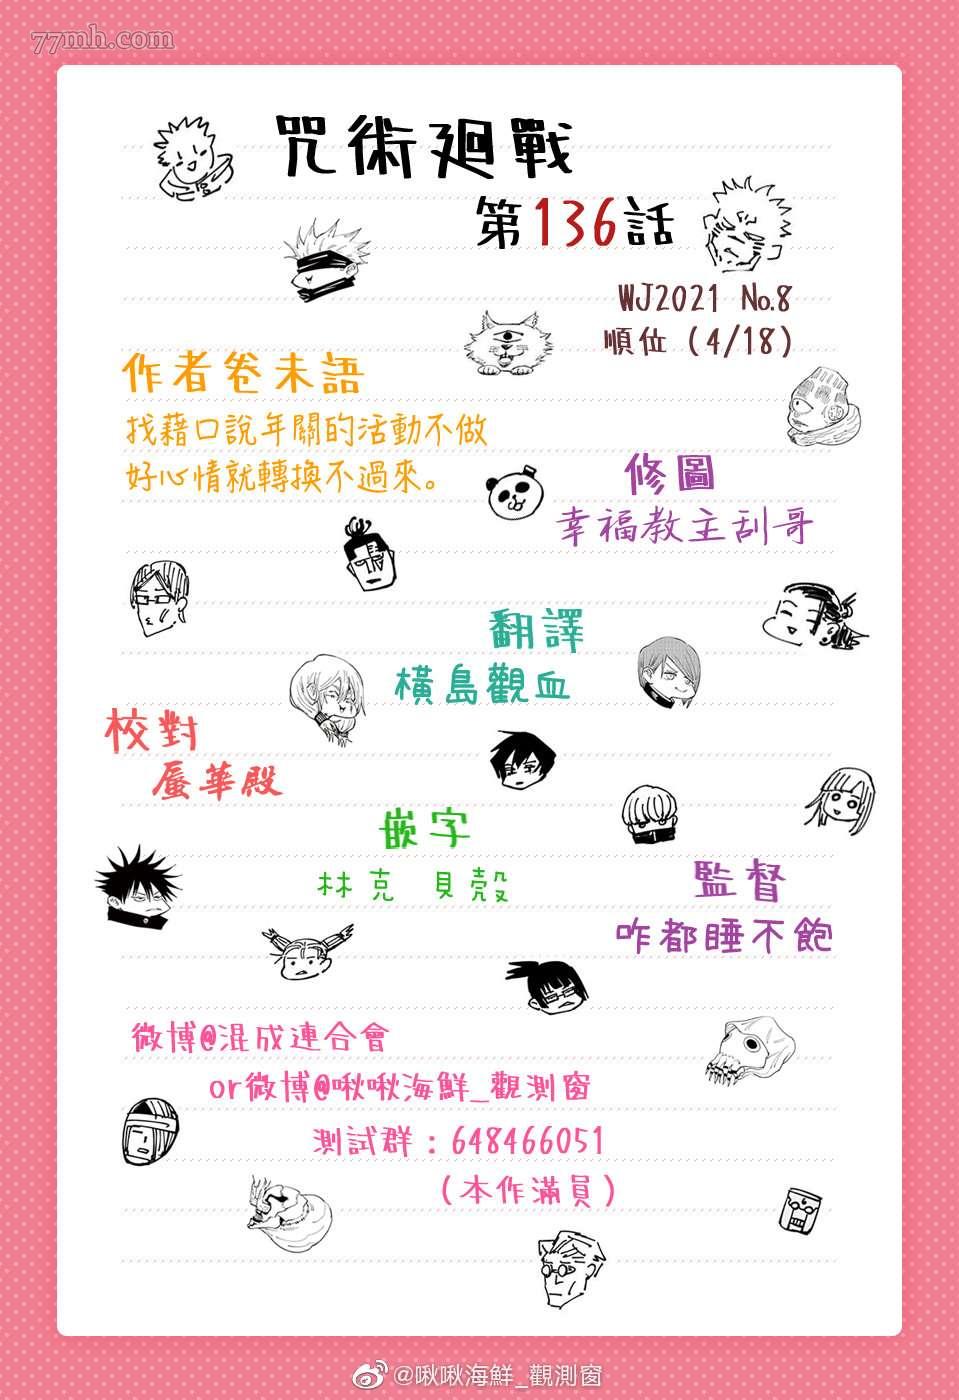 77mh.com
咒術廻戰
第136話
WJ2021 No.8
順位（4/18）
作者卷末語
找藉口說年關的活動不做
好心情就轉換不過來。
修圖
幸福教主刮哥
翻譯
橫島觀血
校對
蜃華殿
嵌字
林克 貝殼
監督
咋都睡不飽
微博@混成連合會
or微博@啾啾海鮮_觀測窗
測試群：648466051
（本作滿員）
@啾啾海鮮_觀測窗